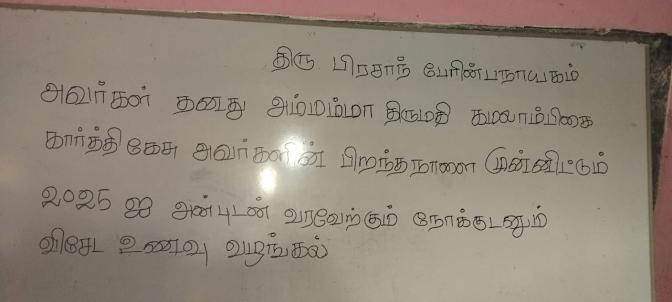 திரு பிரசாந் பேரின்பநாயகம்
அவர்கள் தனது அம்மம்மா திருமதி கமலாம்பிகை
கார்த்திகேசு அவர்களின் பிறந்தநாளை முன்னிட்டும்
2025 ஐ அன்புடன் வரவேற்கும் நோக்குடனும்
விசேட உணவு வழங்கல்